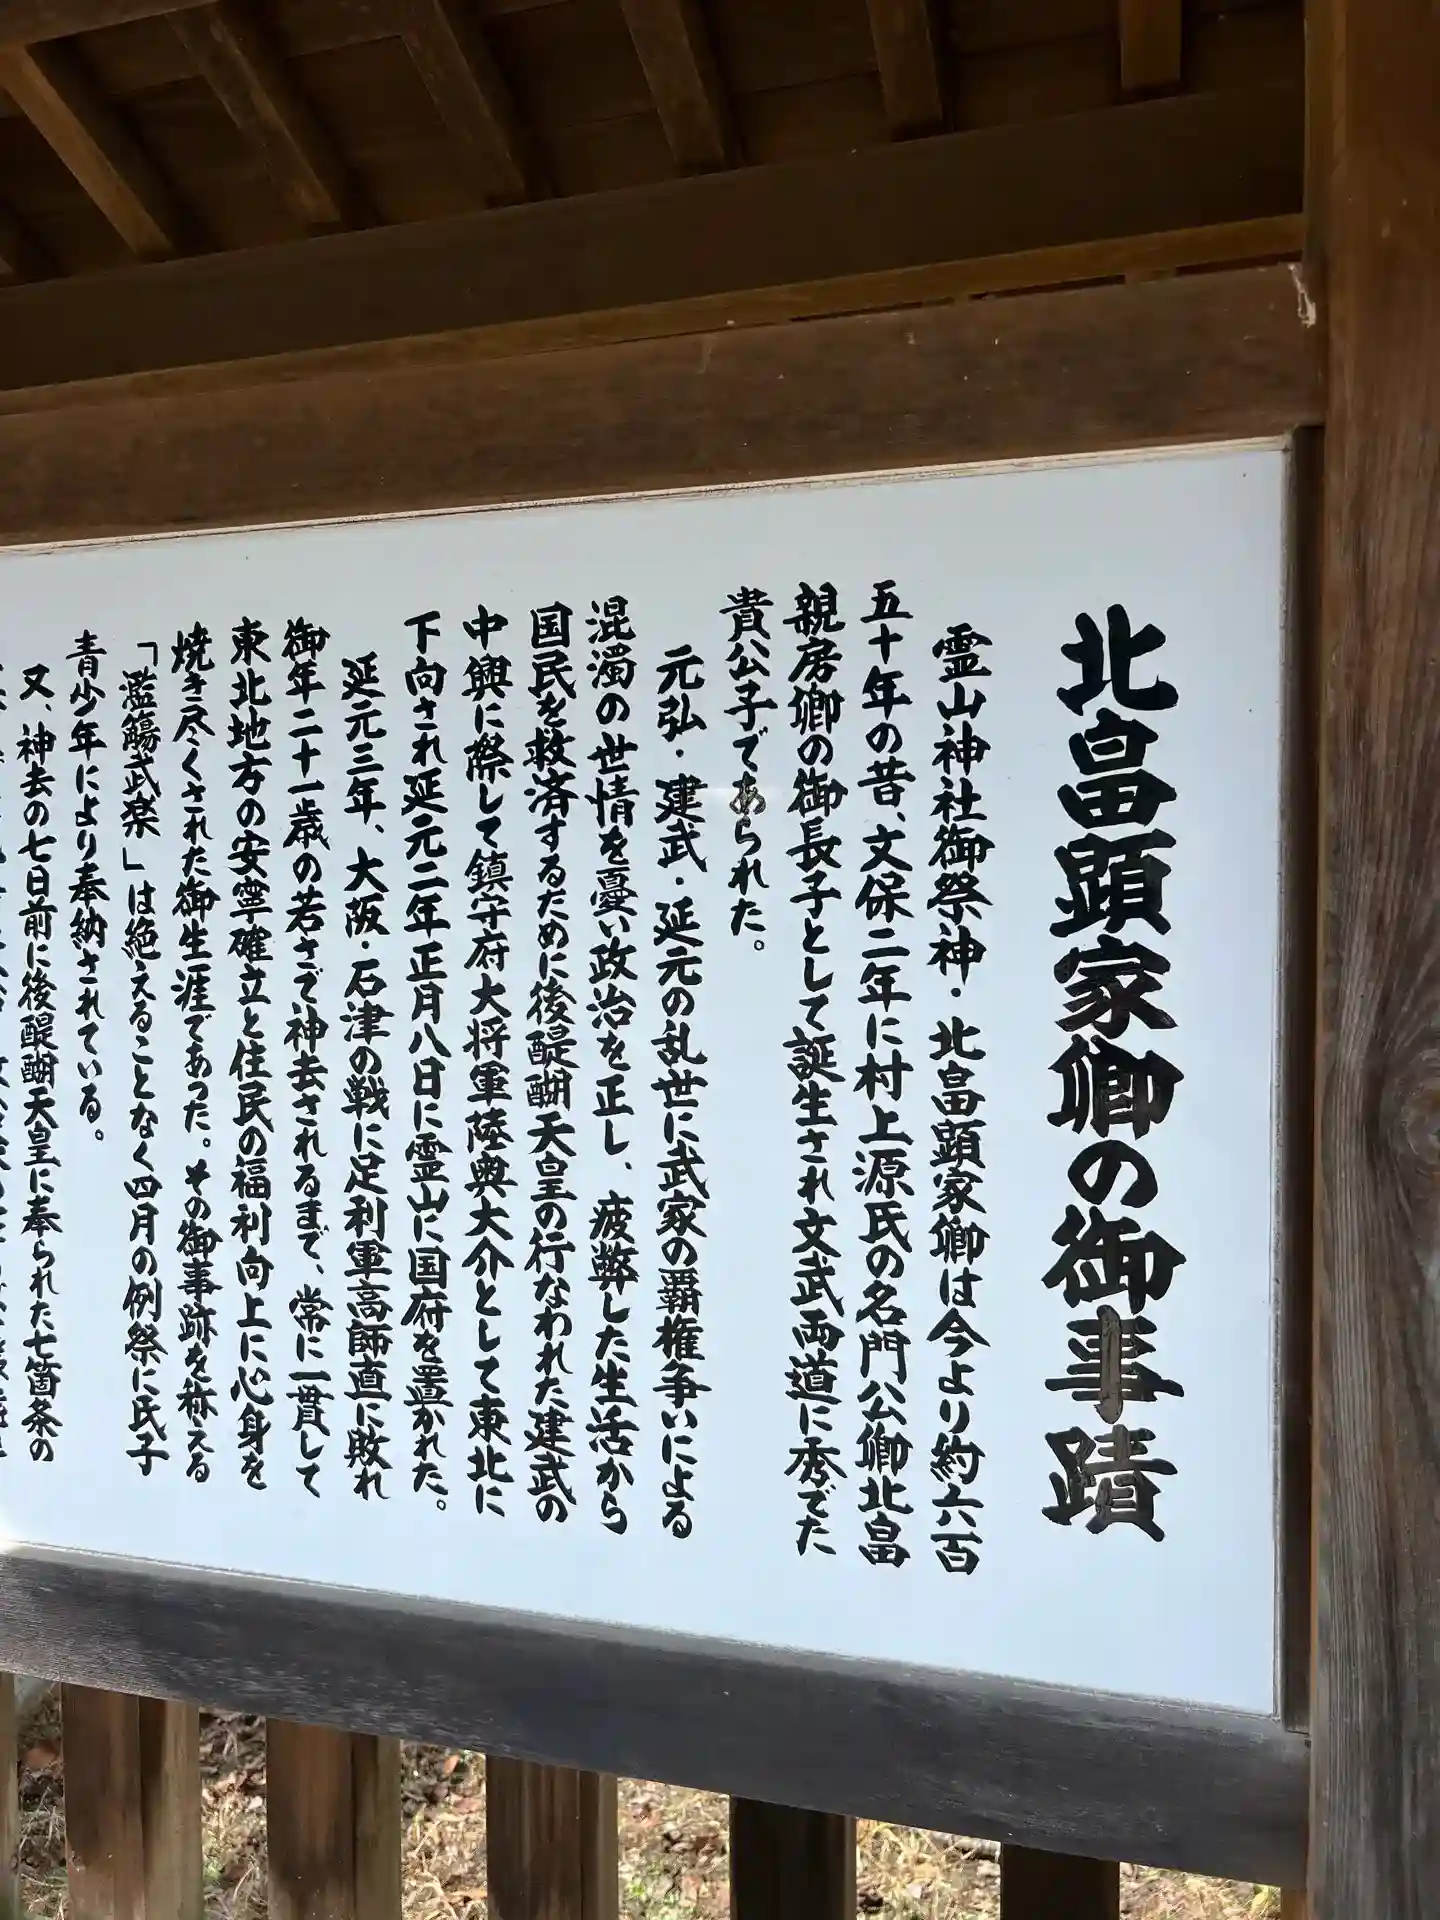 北畠顕家卿の御事蹟
霊山神社御祭神・北畠顕家卿は今より約六百
五十年の昔、文保二年に村上源氏の名門公卿北畠
親房卿の御長子として誕生され文武両道に秀でた
貴公子であられた。
元弘・建武・延元の乱世に武家の覇権争いによる
混濁の世情を憂い政治を正し、疲弊した生活から
国民を救済するために後醍醐天皇の行なわれた建武の
中興に際して鎮守府大将軍陸奥大介として東北に
下向され延元二年正月八日に霊山に国府を置かれた。
延元三年、大阪・石津の戦に足利軍高師直に敗れ
御年二十一歳の若さで神去されるまで、常に一貫して
東北地方の安寧確立と住民の福利向上に心身を
焼き尽くされた御生涯であった。その御事跡を称える
「濫觴武楽」は絶えることなく四月の例祭に氏子
青少年により奉納されている。
又、神去の七日前に後醍醐天皇に奉られた七箇条の